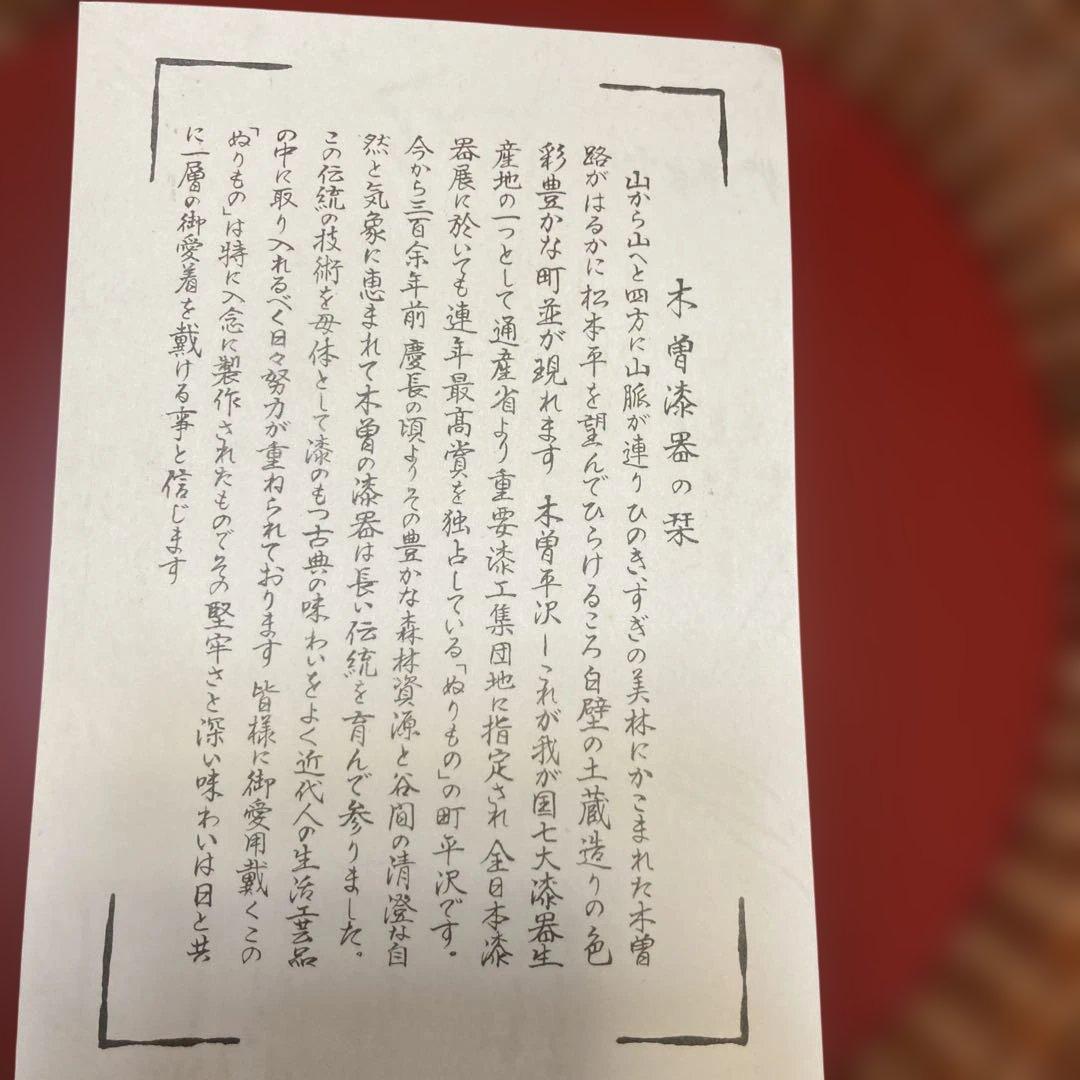 木曽漆器の栞
山から山へと四方に山脈が連りひのき、すぎの美林にかこまれた木曽
路がはるかに松本平を望んでひらけるころ白壁の土蔵造りの色
彩豊かな町並が現れます 木曽平沢ーこれが我が国七大漆器生
産地の一つとして通産省より重要漆工集団地に指定され 全日本漆
器展に於いても連年最高賞を独占している「ぬりもの」の町平沢です。
今から三百余年前 慶長の頃よりその豊かな森林資源と谷間の清澄な自
然と気象に恵まれて木曽の漆器は長い伝統を育んで参りました。
この伝統の技術を母体として漆のもつ古典の味わいをよく近代人の生活工芸品
の中に取り入れるべく日々努力が重ねられております 皆様に御愛用戴くこの
「ぬりもの」は特に入念に製作されたものでその堅牢さと深い味わいは日と共
に一層の御愛着を戴ける事と信じます